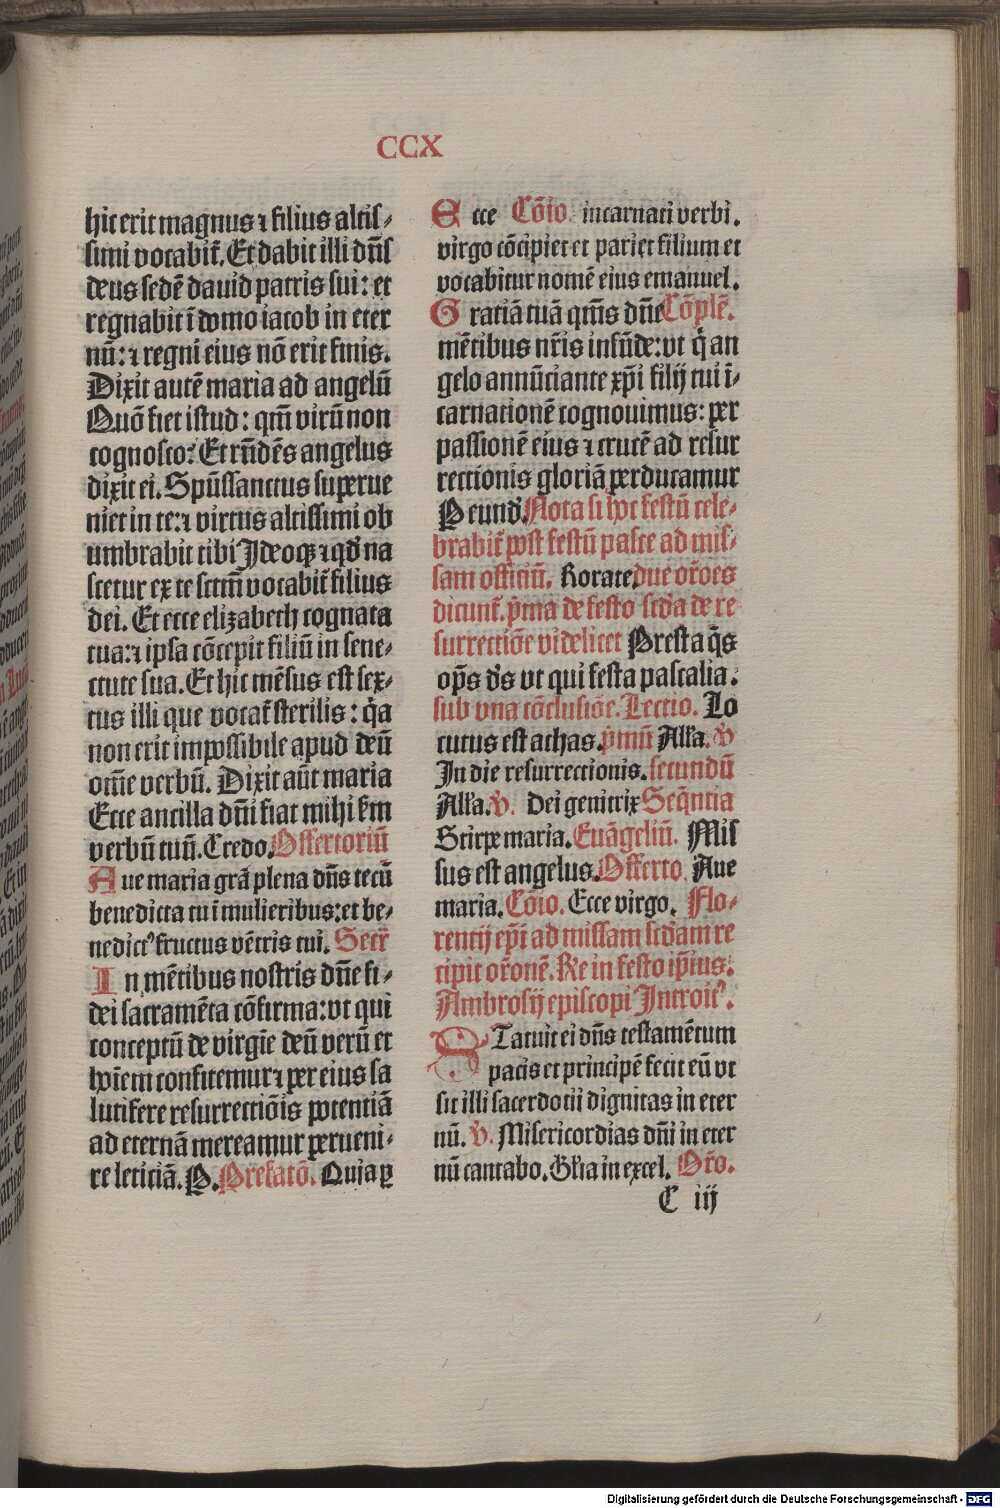 CCX
hic erit magnus ⁊ filius altis⸗
simi vocabit᷑. Et dabit illi dn̄s
deus sedē dauid patris sui: et
regnabit ī domo iacob in eter
nū: ⁊ regni eius nō erit finis.
Dixit autē maria ad angelū
Quō fiet istud: qm̄ virū non
cognosco? Et rn̄dēs angelus
dixit ei. Spūssanctus superue
niet in te: ⁊ virtus altissimi ob
umbrabit tibi Ideoqꝫ ⁊ qd̓ na
scetur ex te sctm̄ vocabit᷑ filius
dei. Et ecce elizabeth cognata
tua: ⁊ ipsa cōcepit filiū in sene⸗
ctute sua. Et hic mēsus est sex⸗
tus illi que vocat᷑ sterilis: q̄a
non erit impossibile apud deū
om̄e verbū. Dixit aūt maria
Ecce ancilla dn̄i fiat mihi ẜm
verbū tuū. Credo. Offertoriū
Aue maria grā plena dn̄s tecū
benedicta tu ī mulieribus: et be⸗
nedictꝰ fructus vētris tui. Secr̄
In mētibus nostris dn̄e fi⸗
dei sacramēta cōfirma: vt qui
conceptū de virgīe deū verū et
hoīem confitemur ⁊ per eius sa
lutifere resurrectiōis potentiā
ad eternā mereamur perueni⸗
re leticiā. P. Prefatō. Quia ꝑ
Ecce Cōio. incarnati verbi.
virgo cōcipiet et pariet filium et
vocabitur nomē eius emanuel.
Gratiā tuā qm̄s dn̄e Cōplē.
mētibus nr̄is infūde: vt q̄ an
gelo annūciante xp̄i filij tui ī⸗
carnationē cognouimus: per
passionē eius ⁊ crucē ad resur
rectionis gloriā perducamur
Peund̓. Nota si hoc festū cele⸗
brabit᷑ post festū pasce ad mis⸗
sam officiū. Rorate. due or̄oes
dicunt᷑. p̄ma de festo scd̓a de re
surrectiōe videlicet Presta q̄s
op̄s d̓s vt qui festa pascalia.
sub vna cōclusiōe. Lectio. Lo
cutus est achas. p̄mū Alla. V̓
In die resurrectionis. secundū
Alla. V̓. Dei genitrix Seq̄ntia
Stirpe maria. Euāgeliū. Mis
sus est angelus. Offerto. Aue
maria. Cōio. Ecce virgo. Flo⸗
rentij ep̄i ad missam scd̓am re
cipit or̄onē. Re in festo ip̄ius.
Ambrosij episcopi Introitꝰ.
STatuit ei dn̄s testamētum
pacis et principē fecit eū vt
sit illi sacerdotii dignitas in eter
nū. V̓. Misericordias dn̄i in eter
nū cantabo. Gl̓ia in excel. Or̄o.
C iij
Digitalisierung gefördert durch die Deutsche Forschungsgemeinschaft - DFG